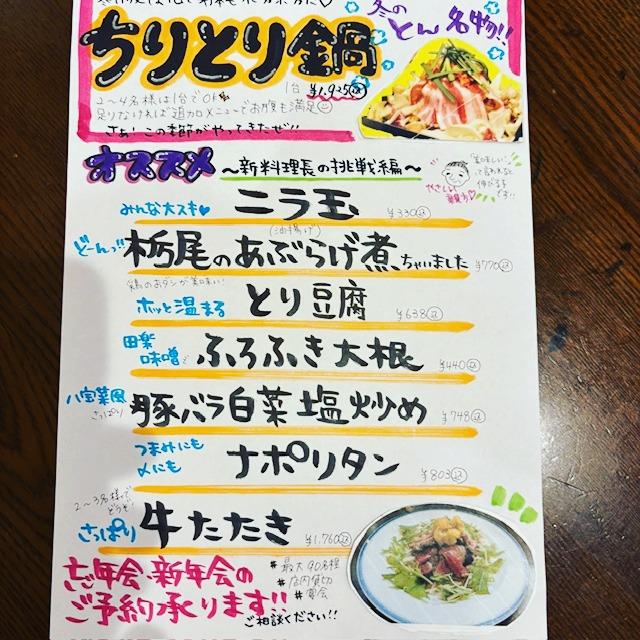 冬の
とん名物!!
ちりとり鍋
1台 ¥1,925込
2〜4名様は1台でOK
足りなければ追加メニューでお腹も満足
さぁ!この季節がやってきたぜ!!
オススメ 〜新料理長の挑戦編〜
"美味しい"
って言われると
伸びます
です!!
やさしい
みんな大スキ♡ ニラ玉 ¥330込
(油揚げ)
どーんっ!! 栃尾のあぶらげ煮ちゃいました ¥770込
鶏のおダシが美味い!
ホッと温まる とり豆腐 ¥638込
田楽味噌で ふろふき大根 ¥440込
八宝菜風 さっぱり 豚バラ白菜塩炒め ¥748込
つまみにも 〆にも ナポリタン ¥803込
2〜3名様でどうぞ!
さっぱり 牛たたき ¥1,760込
忘年会・新年会の
ご予約承ります!!
# 最大90名様
# 店内貸切
# 宴会
ご相談ください!!